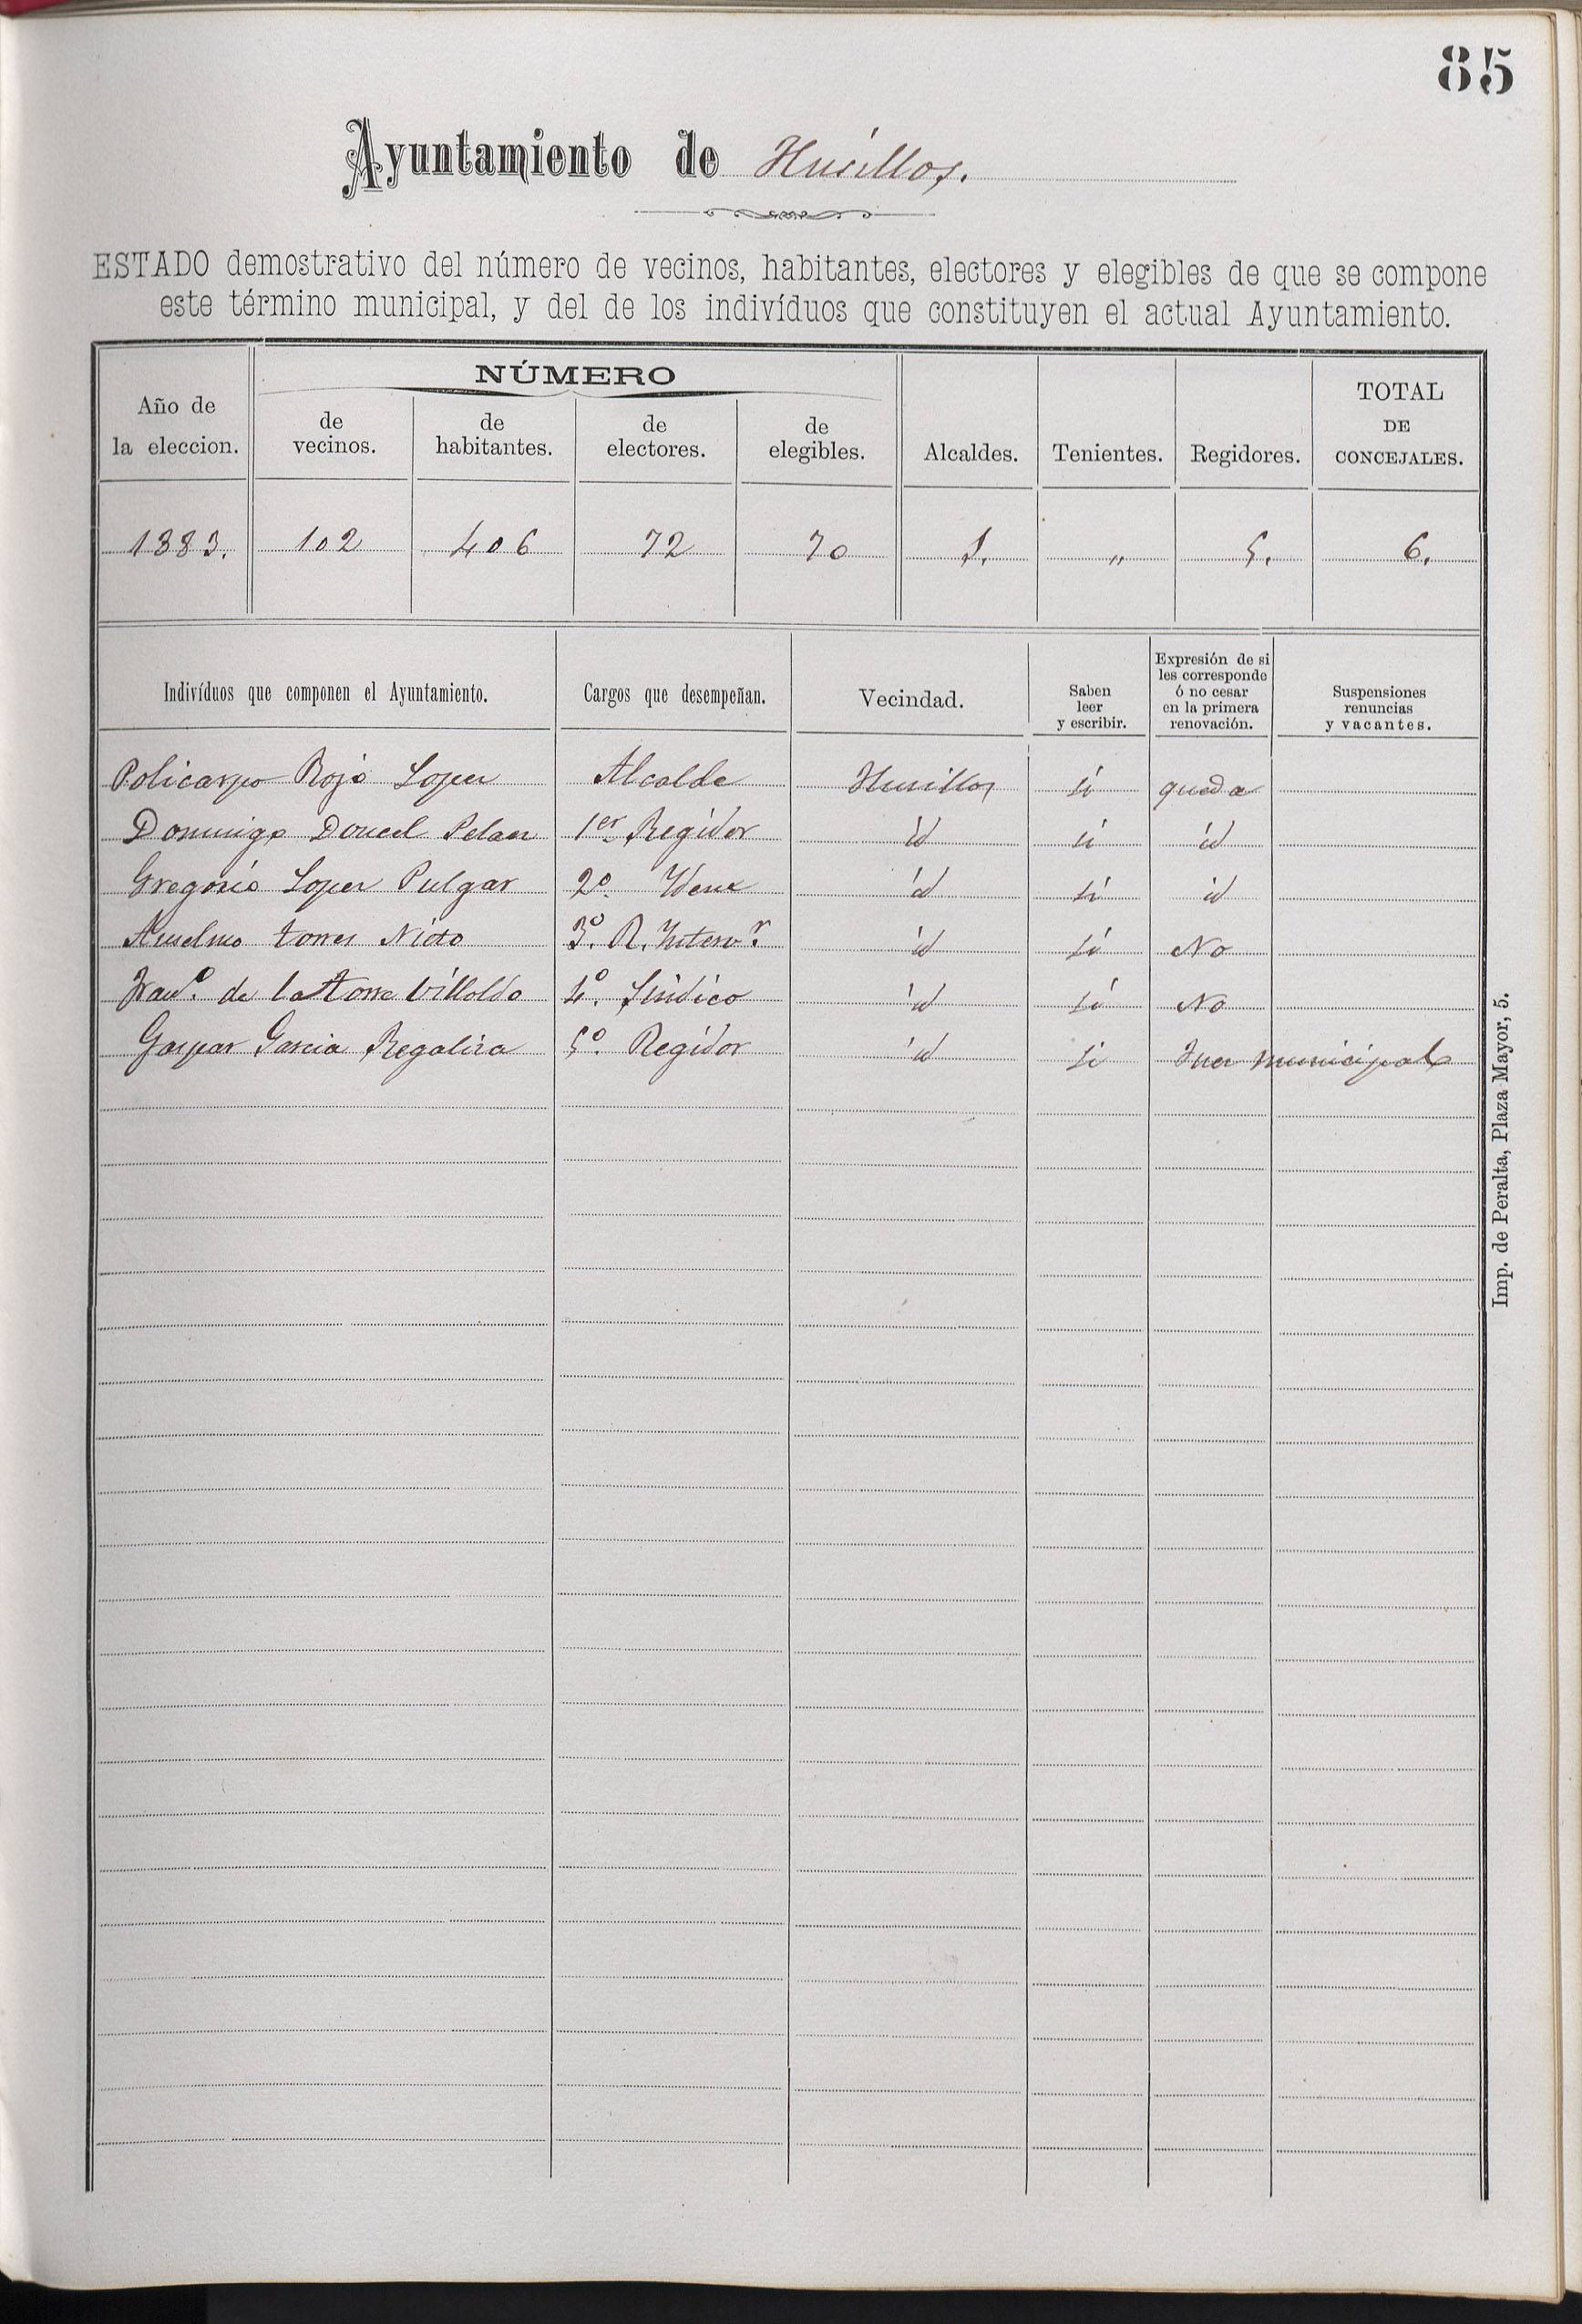 85
Ayuntamiento de Husillos.
ESTADO demostrativo del número de vecinos, habitantes, electores y elegibles de que se compone
este término municipal, y del de los indivíduos que constituyen el actual Ayuntamiento.
Año de la eleccion. NÚMERO de vecinos. de habitantes. de electores. de elegibles. Alcaldes. Tenientes. Regidores. TOTAL DE CONCEJALES.
1883. 102 406 72 70 1. " 5. 6.
Indivíduos que componen el Ayuntamiento. Cargos que desempeñan. Vecindad. Saben leer y escribir. Expresión de si les corresponde ó no cesar en la primera renovación. Suspensiones renuncias y vacantes.
Policarpo Rojo Lopez Alcalde Husillos si queda
Domingo Doncel Pelaez 1er Regidor id si id
Gregorio Lopez Pulgar 2º Idem id si id
Anselmo torres Nieto 3º. R. Interv.r id si No
Franco. de la torre Villoldo 4º. Sindico id si No
Gaspar Garcia Regaliza 5º. Regidor id si Juez municipal
Imp. de Peralta, Plaza Mayor, 5.